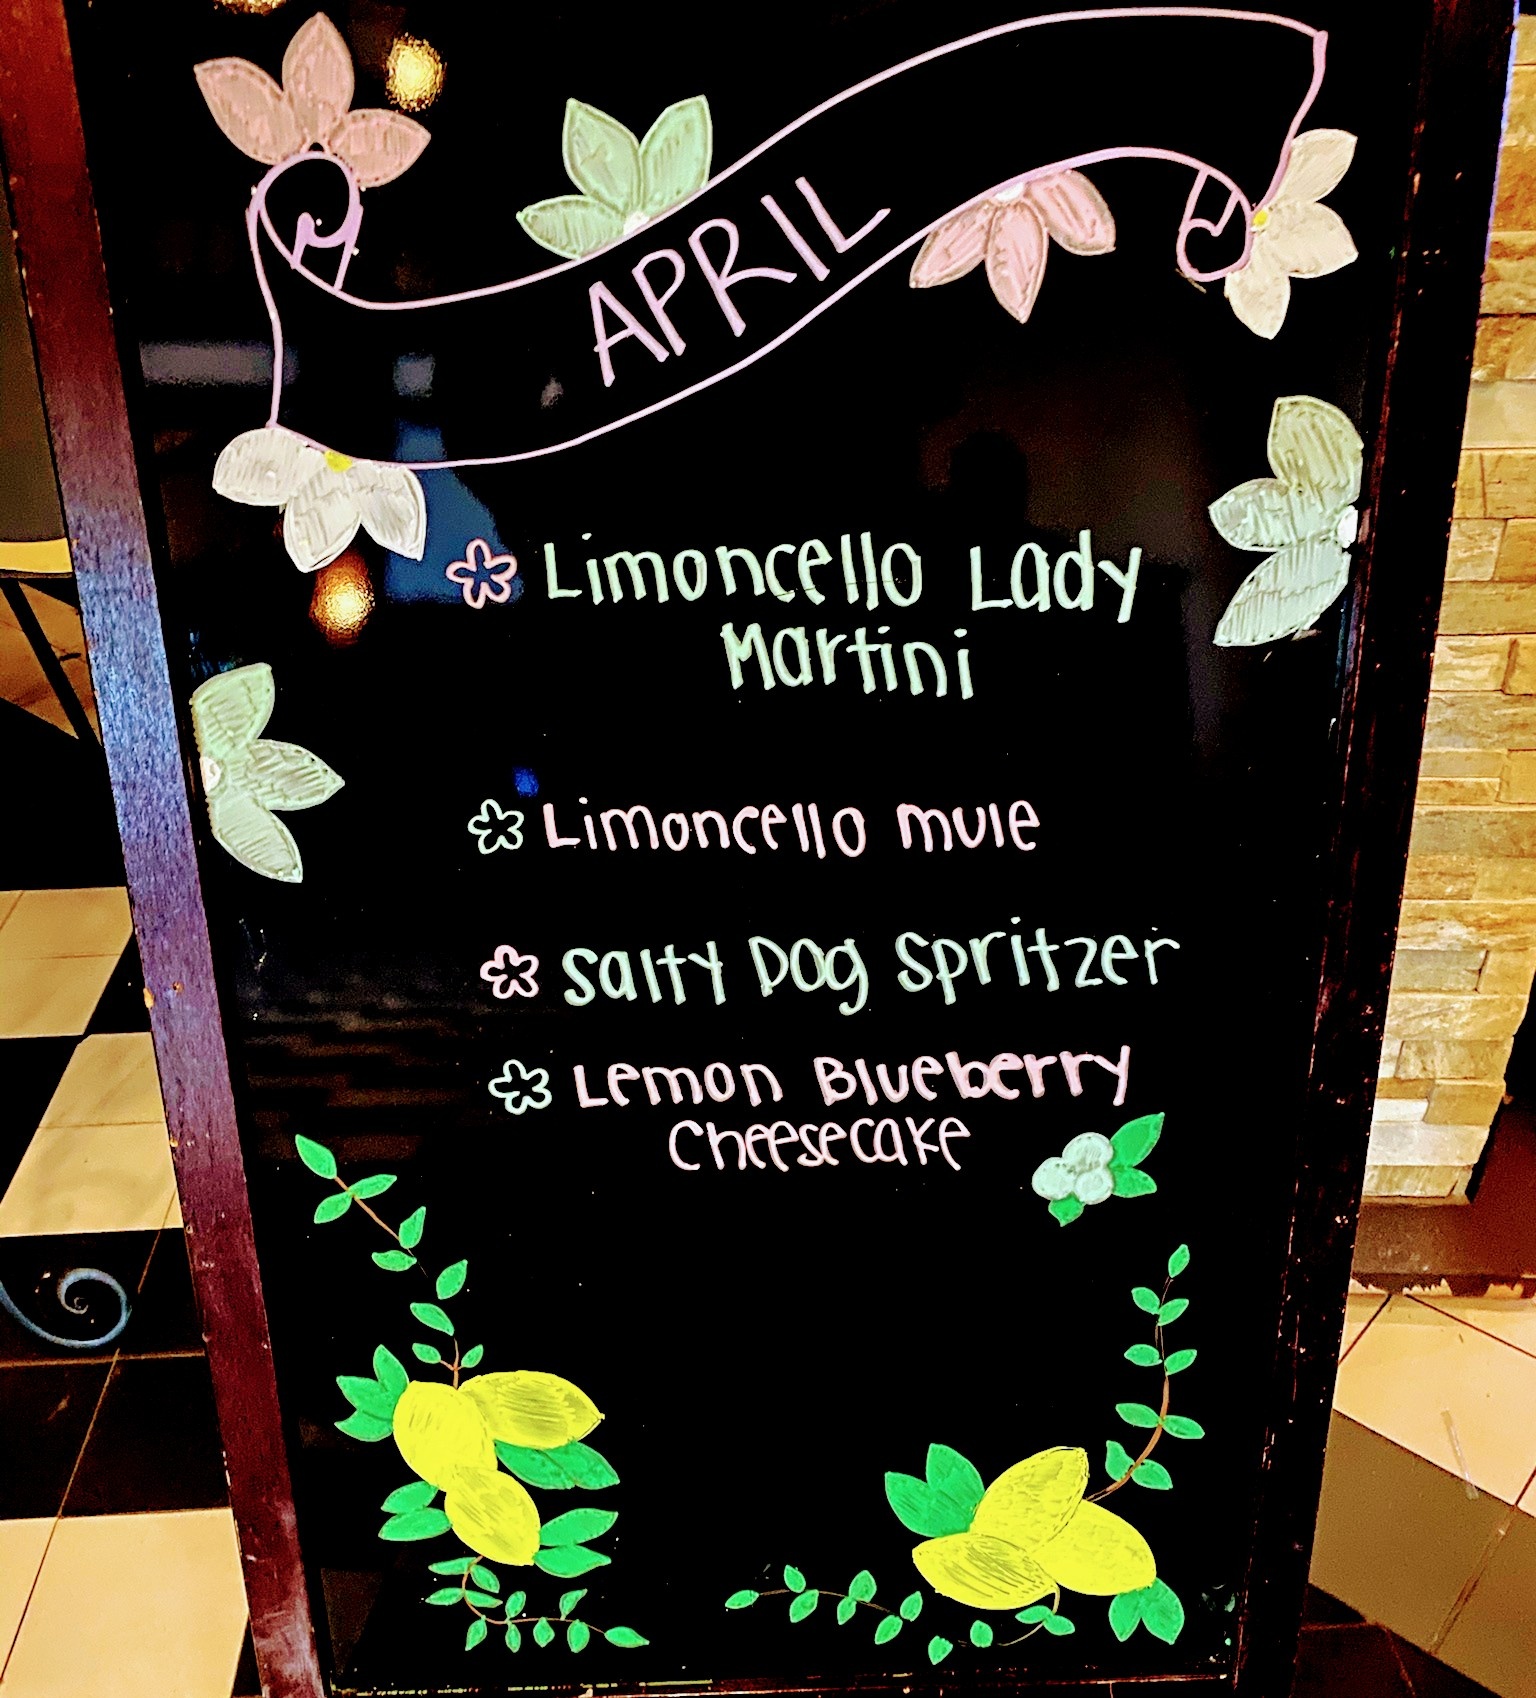 APRIL
Limoncello Lady
Martini
Limoncello mule
Salty Dog Spritzer
Lemon Blueberry
Cheesecake